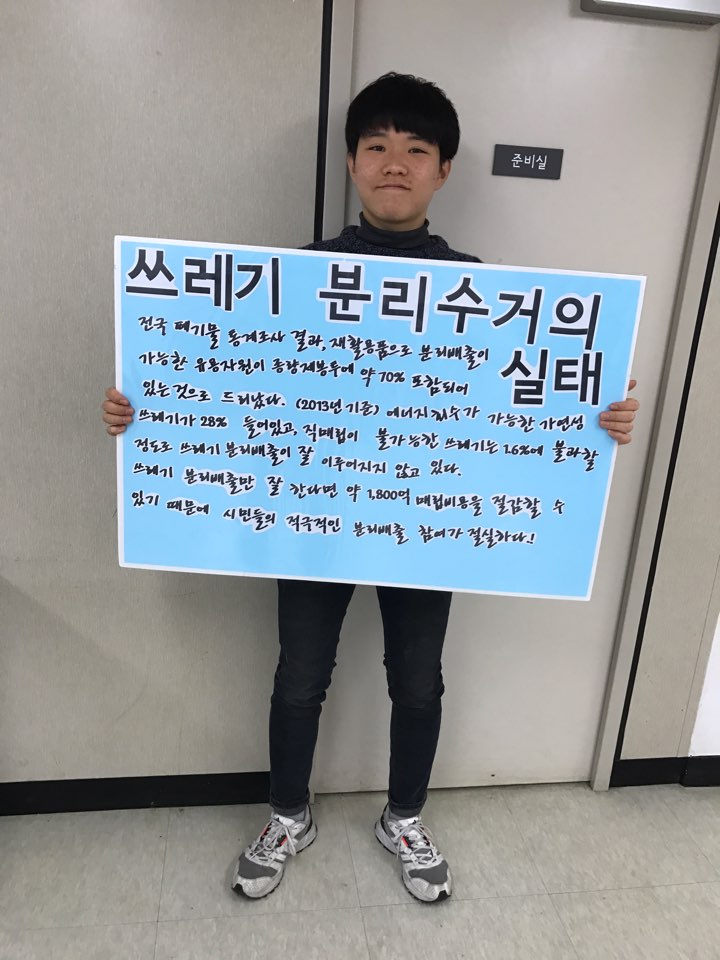 준비실
쓰레기 분리수거의
실태
전국 폐기물 통계조사 결과, 재활용품으로 분리배출이
가능한 유용자원이 종량제봉투에 약 70% 포함되어
있는것으로 드러났다. (2013년 기준) 에너지회수가 가능한 가연성
쓰레기가 28% 들어있고, 직매립이 불가능한 쓰레기는 1.6%에 불과할
정도로 쓰레기 분리배출이 잘 이루어지지 않고 있다.
쓰레기 분리배출만 잘 한다면 약 1,800억 매립비용을 절감할 수
있기 때문에 시민들의 적극적인 분리배출 참여가 절실하다!